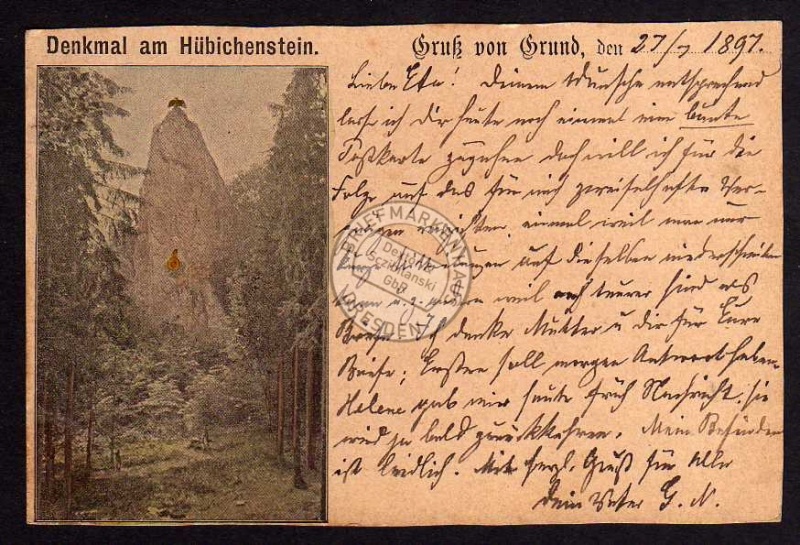 Denkmal am Hübichenstein.
Gruß von Grund, den 27/7 1897.
Liebe Ella! Deinem Wunsche entsprechend
lasse ich Dir heute noch einmal eine bunte
Postkarte zugehen doch will ich für die
Folge auf das für mich zweifelhafte Ver-
gnügen verzichten, einmal weil man nur
auf dieselben niederschreiben
kann u. weil auch teurer sind als
Briefe. Ich danke Mutter u Dir für Eure
Briefe; Erstere soll morgen Antwort haben.
Helene gab mir heute früh Nachricht, sie
wird ja bald zurückkehren. Mein Befinden
ist leidlich. Mit herzl. Gruß für Alle
Dein Vater G. N.
BRIEFMARKENHAUS
Dekiwanski
GbR
DRESDEN